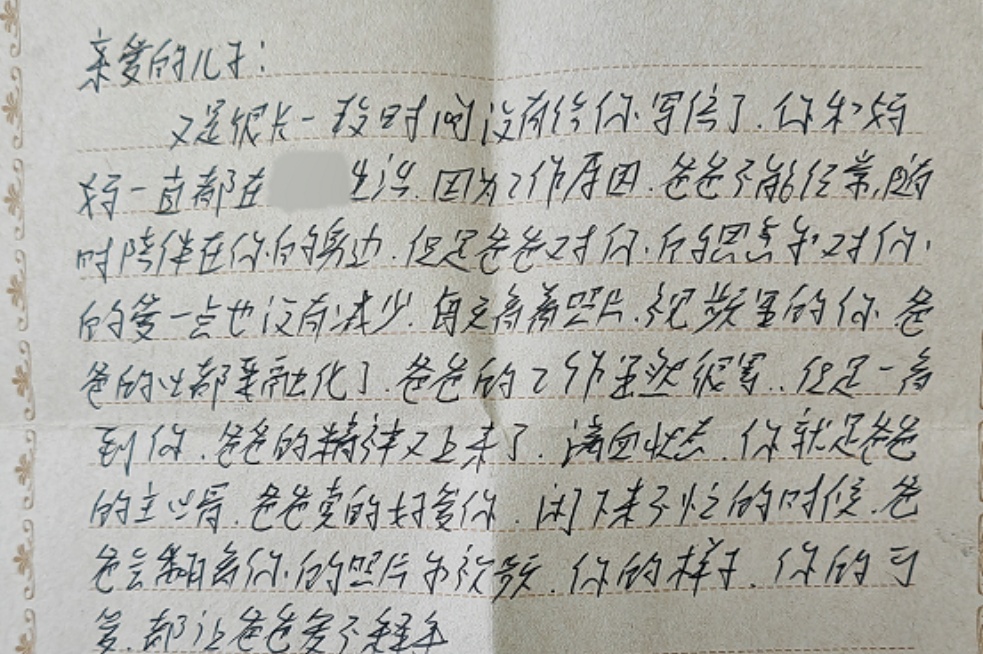 亲爱的儿子：
又是很长一段时间没有给你写信了.你和妈
妈一直都在生活.因为工作原因.爸爸不能经常,随
时陪伴在你的身边.但是爸爸对你的思念和对你
的爱一点也没有减少.每天看着照片.视频里的你.爸
爸的心都要融化了.爸爸的工作虽然很累..但是一看
到你.爸爸的精神又上来了.满血状态.你就是爸爸
的主心骨.爸爸真的好爱你.闲下来不忙的时候.爸
爸会翻看你的照片和视频.你的样子.你的可
爱.都让爸爸爱不